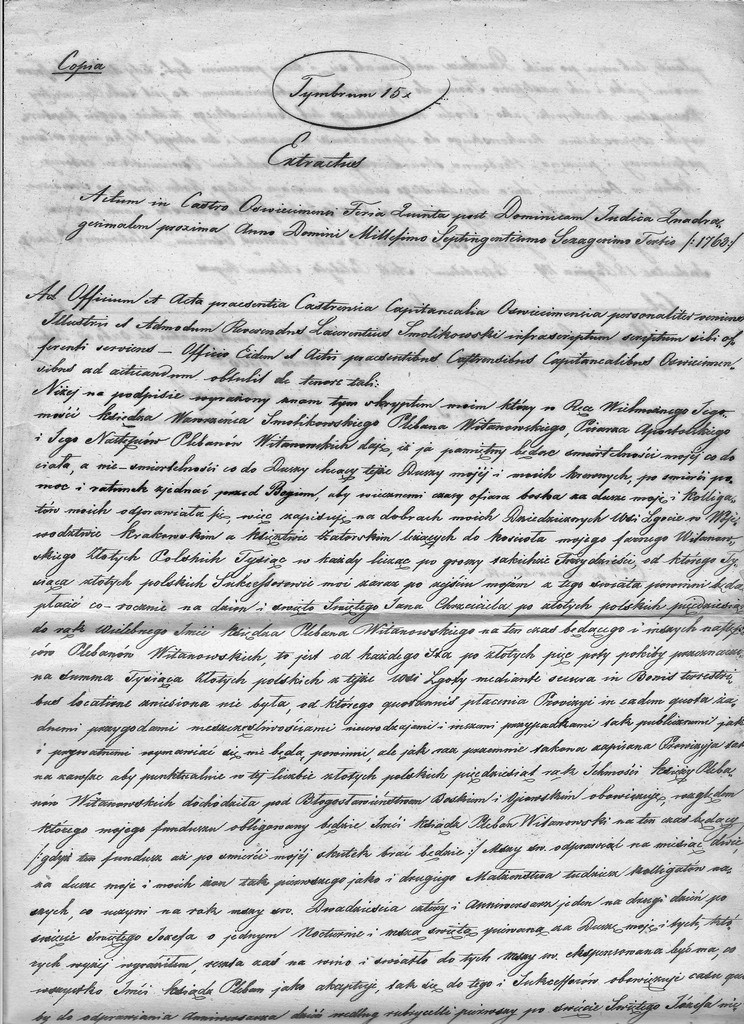 Copia
Tymbrum 15 x
Extractus
Actum in Castro Oswiecimensi Feria Quinta post Dominicam Judica Quadra-
gesimalem proxima Anno Domini Millesimo Septingentesimo Sexagesimo Tertio /:1763:/
Ad Officium et Acta praesentia Castrensia Capitanealia Oswiecimensia personaliter veniens
Illustris et Admodum Reverendus Laurentius Smolikowski infrascriptum scriptum sibi of-
ferenti serviens – Officio Eidem et Actis praesentibus Castrensibus Capitanealibus Oswiecimen-
sibus ad acticandum obtulit de tenore tali:
Niżej na podpisie wyrażony znam tym skryptem moim który w Ręce Wielmożnego Jego-
mości księdza Wawrzeńca Smolikowskiego Plebana Witanowskiego, Pisarza Apostolskiego
i Jego Następców Plebanów Witanowskich daję, iż ja pamiętny będąc śmiertelności mojej co do
ciała, a nie-śmiertelności co do Duszy chcący tejże Duszy mojej i moich krewnych, po śmierci po-
moc i ratunek zjednać przed Bogiem, aby wiecznemi czasy ofiara boska za duszę moję i kolliga-
tów moich odprawiała się, więc zapisuję na dobrach moich Dziedzicznych Wsi Lgocie w Woje-
wodztwie krakowskim a księztwie Zatorskim leżących do kościoła mojego farnego Witanow-
skiego Złotych Polskich Tysiąc w każdy licząc po groszy srebrnych Trzydzieści, od którego Ty-
siąca złotych polskich Sukcessorowie moi zaraz po zejściu mojem z tego świata powinni będą
płacić co-rocznie na dzień i święto Świętego Jana Chrzciciela po złotych polskich pięćdziesiąt
do rąk wielebnego Jmći księdza Plebana Witanowskiego na ten czas będącego i inszych następ-
ców Plebanów Witanowskich, to jest od każdego Sta po złotych pięć póty pókiby przezemnie
na summa Tysiąca Złotych polskich z tejże Wsi Lgoty mediante in Bonis terrestri-
bus locatione zniesiona nie była, od którego quotannis płacenia Prowizyi in eadem quota ża-
dnemi przygodami nieszczęśliwościami nieurodzajami i inszemi przypadkami tak publicznemi jak
i prywatnemi wymawiać się nie będą powinni, ale jak raz przezemnie takowa zapisana Prowizyja
na zawsze aby punktualnie w tej liczbie złotych polskich pięćdziesiąt rąk Ichmości księży Pleba-
nów Witanowskich dochodziła pod Błogosławieństwem Boskiem i Ojcowskim obowiązuję, względem
którego mojego funduszu obligowany będzie Jmći ksiądz Pleban Witanowski na ten czas będący
/:gdyż ten fundusz aż po śmierci mojej skutek brać będzie:/ Mszy św. odprawiać na miesiąc dwie,
za duszę moję i moich żon tak pierwszego jako i drugiego Małżeństwa tudzież kolligatów na-
szych, co uczyni na rok mszy św. Dwadzieścia cztéry i Anniwersarz jeden na drugi dzień po
święcie Świętego Józefa o jednym Nocturnie i mszą świętą śpiewaną za Duszę moję i tych, któ-
rych wyżej wyraziłem, reszta zaś na wino i światło do tych Mszy św. ekspensowana być ma, co
wszystko Jmći ksiądz Pleban jako akceptuje, tak się do tego i Sukcessorów obowiązuje casu quo
by do odprawiania Anniwersarza dzień według rubrycelli pierwszy po święcie Świętego Józefa nie